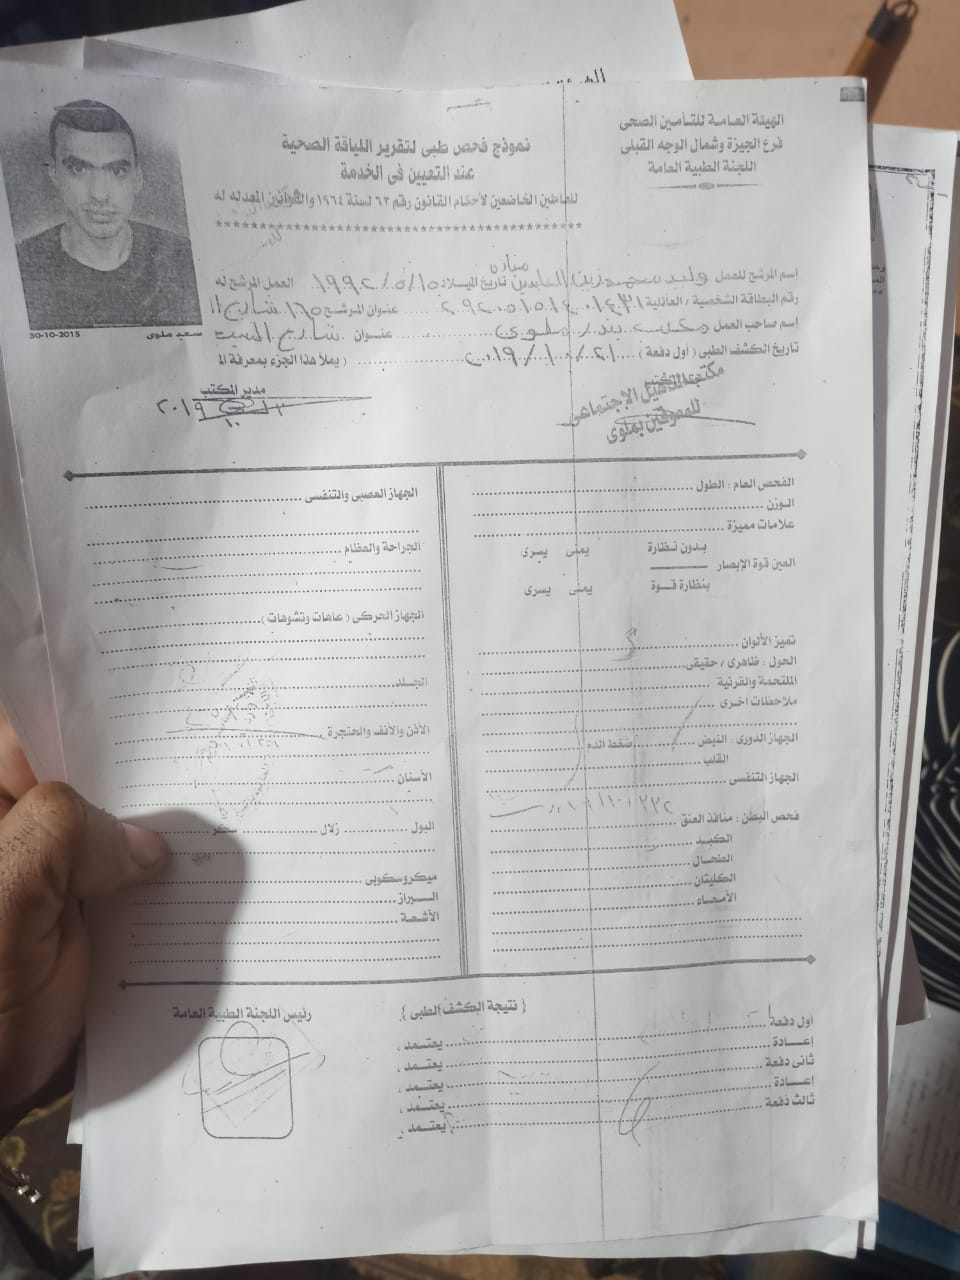 الهيئة العامة للتأمين الصحى
فرع الجيزة وشمال الوجه القبلى
اللجنة الطبية العامة
نموذج فحص طبى لتقرير اللياقة الصحية
عند التعيين فى الخدمة
للعاملين الخاضعين لأحكام القانون رقم ٦٣ لسنة ١٩٦٤ والقوانين المعدله له
30-10-2015 سعيد ملوى
اسم المرشح للعمل وليد محمد زين العابدين تاريخ الميلاد ١٥/٥/١٩٩٢ العمل المرشح له
رقم البطاقة الشخصية / العائلية عنوان المرشح
اسم صاحب العمل مكتب بندر ملوى عنوان شارع
تاريخ الكشف الطبى ( أول دفعة ) ٢١/١٠/٢٠١٩ ( يملأ هذا الجزء بمعرفة
مدير المكتب
مكتب التأهيل الإجتماعى
للمعوقين بملوى
الفحص العام : الطول
الوزن
علامات مميزة
بدون نظارة يمنى يسرى
العين قوة الإبصار
بنظارة قوة يمنى يسرى
تميز الألوان
الحول : ظاهرى / حقيقى
الملتحمة والقرنية
ملاحظات اخرى
الجهاز الدورى : النبض ضغط الدم
القلب
الجهاز التنفسى
فحص البطن : منافذ العنق
الكبد
الطحال
الكليتان
الأمعاء
الجهاز العصبى والتنفسى
الجراحة والعظام
الجهاز الحركى ( عاهات وتشوهات )
الجلد
الأذن والأنف والحنجرة
الأسنان
البول زلال سكر
ميكروسكوبى
البراز
الآشعة
( نتيجة الكشف الطبى )
رئيس اللجنة الطبية العامة
أول دفعة يعتمد ،
إعادة يعتمد ،
ثانى دفعة يعتمد ،
إعادة يعتمد ،
ثالث دفعة يعتمد ،